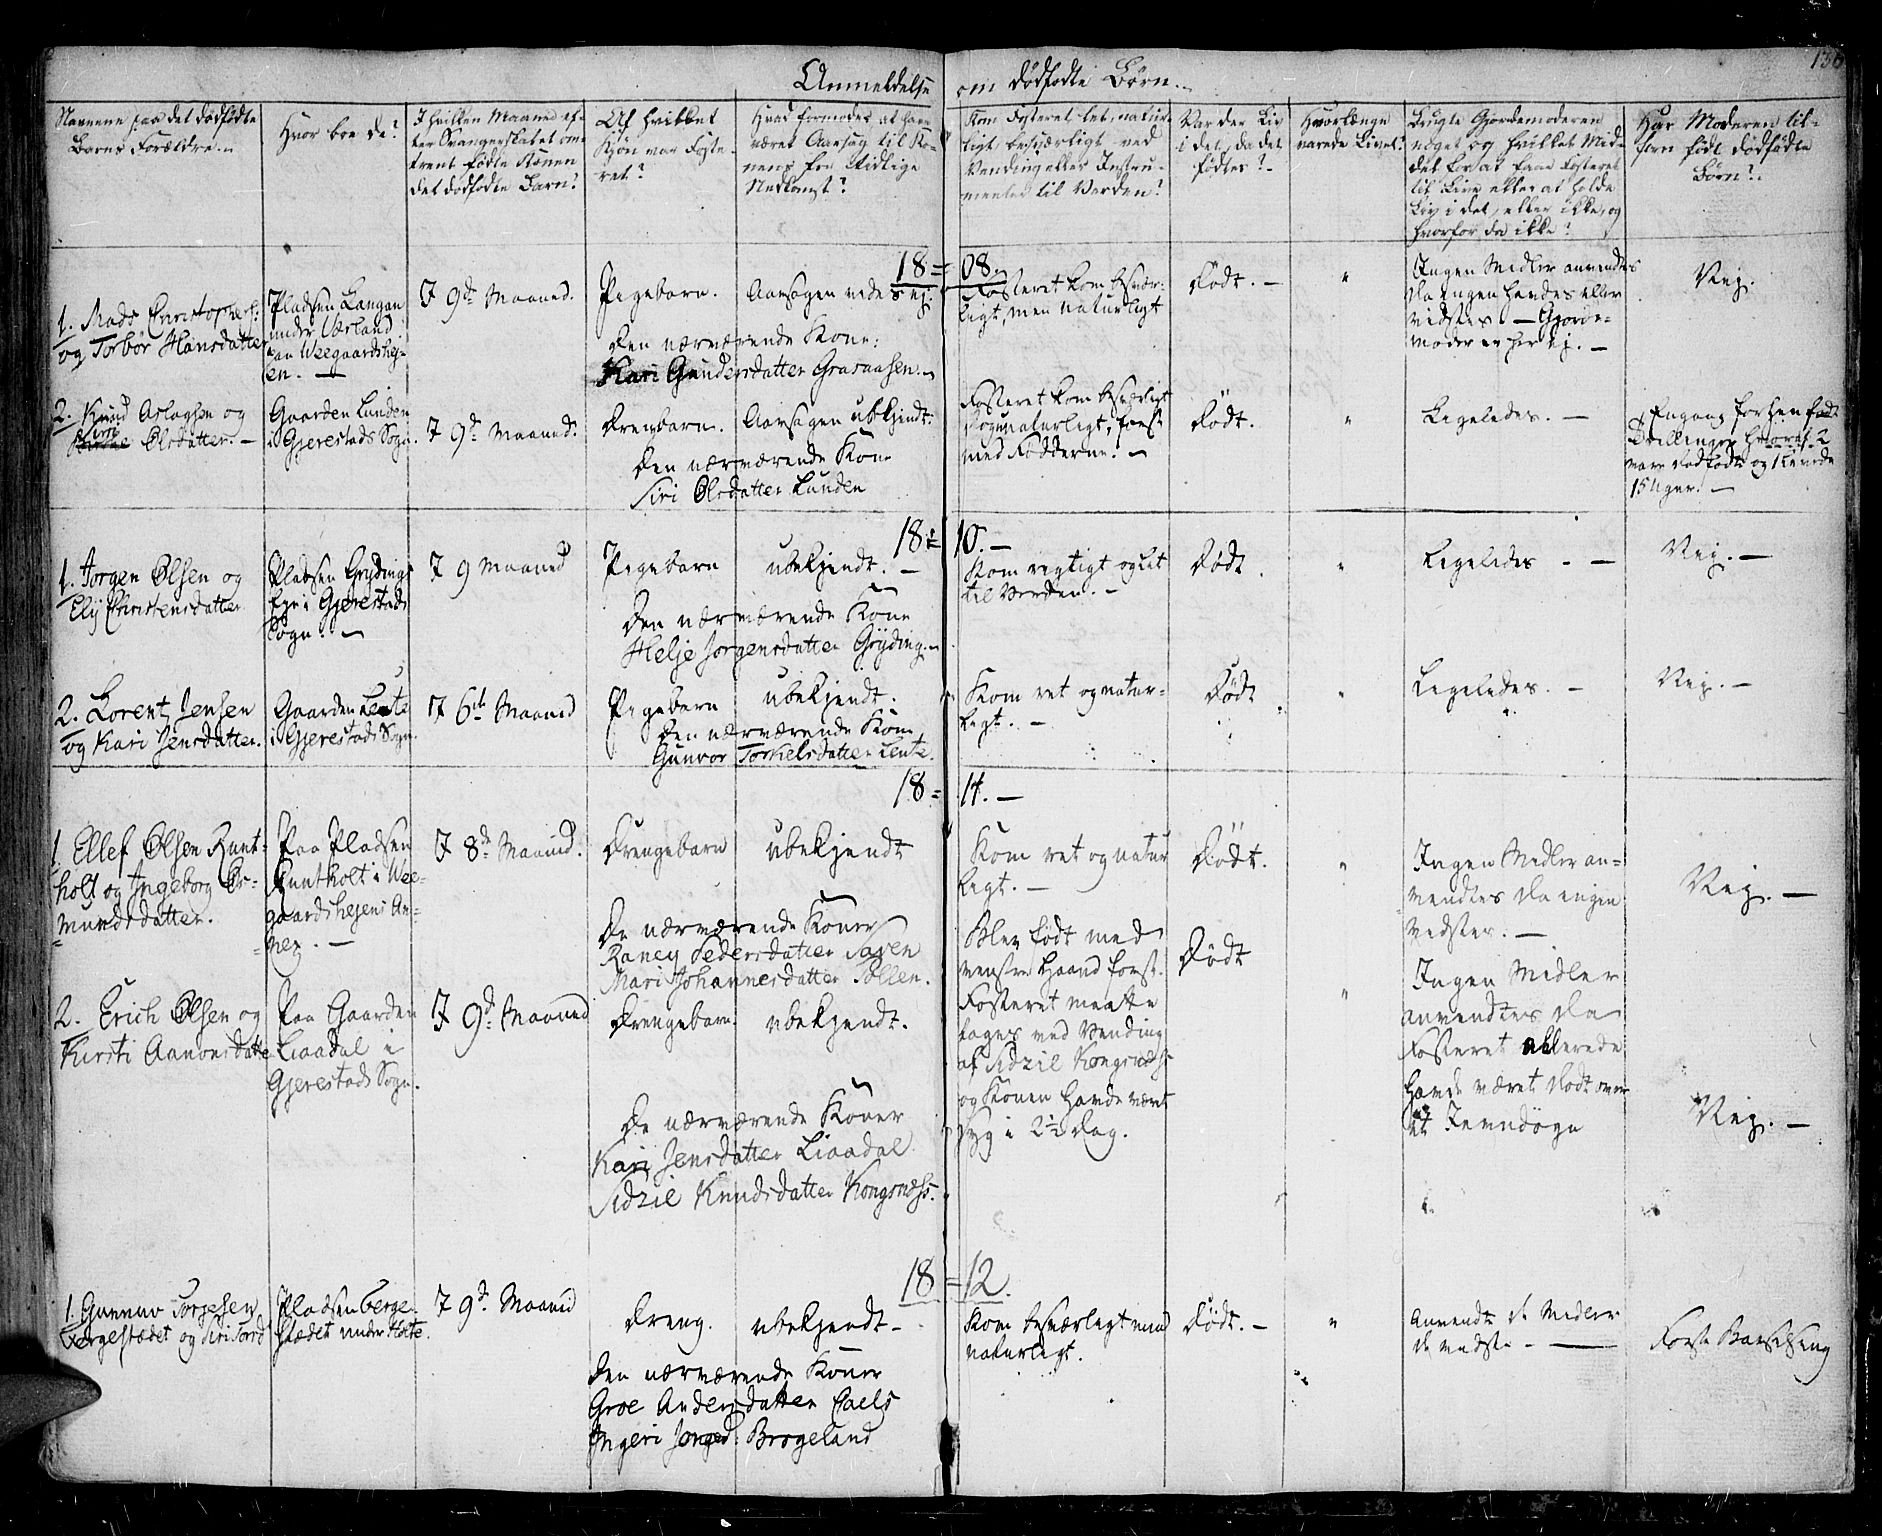 136
Anmeldelse om dødfødte Børn
Navnene paa det dødfødte
Barns Forældre
Hvor boe de?
I hvilken Maaned ef-
ter Svangerskabet om-
trent fødte Konen
det dødfødte Barn?
Af hvilket
Kjøn var Foste-
ret?
Hvad formodes at have
været Aarsag til Ko-
nens for tidlige
Nedkomst?
Kom Fosteret let, natur-
ligt, besværligt ved
Vending eller Instru-
menter til Verden?
Var der Liv
i det, da det
fødtes?
Hvorlænge
varede Livet?
Brugte Gjordemoderen
noget og hvilket Mid-
del for at faae Fosteret
til Live eller at holde
Liv i det, eller ikke, og
hvorfor da ikke?
Har Moderen til-
forn født dødfødte
Børn?
18=08.
1. Mads Christophers:
og Torbor Hansdatter
Pladsen Langan
under Værland
paa Weegaardshej-
en. —
I 9de Maaned.
Pigebarn.
Aarsagen vides ej.
Den nærværende Kone:
Kari Gundersdatter Grasaasen. —
Fosteret kom besvær-
ligt, men naturligt
Dødt. —
"
Ingen Midler anvendtes
da ingen havdes eller
vidstes. — Gjorde-
moder er her ej. —
Nej.
2. Knud Aslagsen og
Siri
Olsdatter. —
Gaarden Lunden
i Gjerestads Sogn.
I 9de Maaned.
Drengebarn.
Aarsagen ubekjendt.
Den nærværende Kone
Siri Olsdatter Lunden
Fosteret kom besværligt
og unaturligt, først
med Fødderne. —
Dødt.
"
Ligeledes. —
Engang forhen født
Trillinger hvoraf 2
vare dødfødte og 1 levede
15 Uger. —
18=10. —
1. Jørgen Olsen og
Elij Christensdatter
Pladsen Grydings
i Gjerestads
Sogn. —
I 9 Maaned
Pigebarn
ubekjendt. —
Den nærværende Kone
Helje Jørgensdatter Gryding. —
Kom rigtigt og let
til Verden. —
Dødt.
"
Ligeledes. —
Nej. —
2. Lorentz Jensen
og Kari Jensdatter.
Gaarden Lente
i Gjerestads Sogn.
I 6te Maaned
Pigebarn
ubekjendt.
Den nærværende Kone
Gunvor Torkelsdatter Lente.
Kom ret og natur-
ligt. —
Dødt
"
Ligeledes. —
Nej. —
18=11. —
1. Ellef Olsen Runt-
holt og Ingeborg Os-
mundsdatter.
Paa Pladsen
Runtholt i Wee-
gaardshejens An-
nex. —
I 8de Maaned.
Drengebarn
ubekjendt
De nærværende Koner
Raney Pedersdatter Sagen
Mari Johannesdatter Sollen.
Kom ret og natur
ligt. —
Dødt.
"
Ingen Midler an-
vendtes da ingen
vidstes. —
Nej. —
2. Erich Olsen og
Kirsti Aanonsdatte
Paa Gaarden
Liaadal i
Gjerestads Sogn.
I 9de Maaned
Drengebarn.
ubekjendt.
De nærværende Koner
Kari Jensdatter Liaadal
Sidzil Knudsdatter Kongsnæss.
Blev født med
venstre Haand først.
Fosteret maatte
tages ved Vending
af Sidzil Kongsnæss
og Konen havde været
syg i 2½ Dag.
Dødt
"
Ingen Midler
anvendtes da
Fosteret allerede
havde været dødt over
et Jevndøgn
Nej. —
18=12.
1. Gunnuv Torgesen
Vergestædet og Siri Tord
Pladsen Verge-
stædet under Holte.
I 9de Maaned
Dreng.
ubekjendt —
Den nærværende Koner
Groe Andersdatter
Ingeri Jonsd: Brogeland
Kom besværligt med
naturligt.
Dødt. —
"
Anvendt Midler
de vidste. —
Første Barselseng